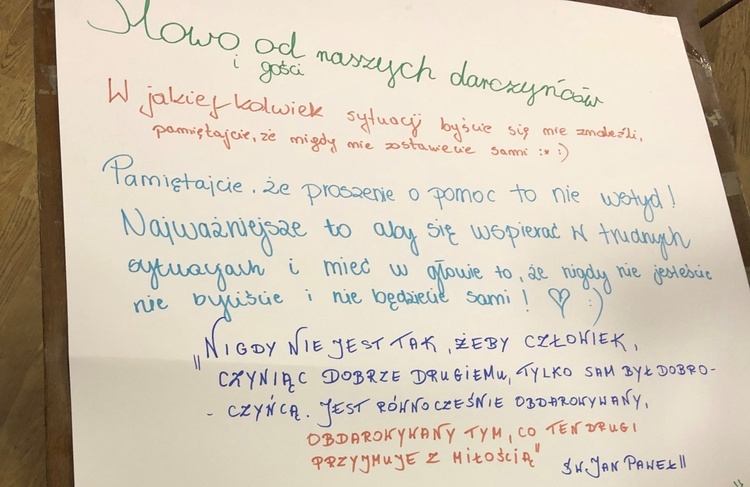 Słowo od naszych darczyńców
i gości
W jakiejkolwiek sytuacji byście się nie znaleźli,
pamiętajcie, że nigdy nie zostaniecie sami :* :)
Pamiętajcie, że proszenie o pomoc to nie wstyd!
Najważniejsze to aby się wspierać w trudnych
sytuacjach i mieć w głowie to, że nigdy nie jesteście
nie byliście i nie będziecie sami! ♡ :)
"NIGDY NIE JEST TAK, ŻEBY CZŁOWIEK,
CZYNIĄC DOBRZE DRUGIEMU, TYLKO SAM BYŁ DOBRO-
- CZYŃCĄ. JEST RÓWNOCZEŚNIE OBDAROWYWANY,
OBDAROWYWANY TYM, CO TEN DRUGI
PRZYJMUJE Z MIŁOŚCIĄ"
ŚW. JAN PAWEŁ II